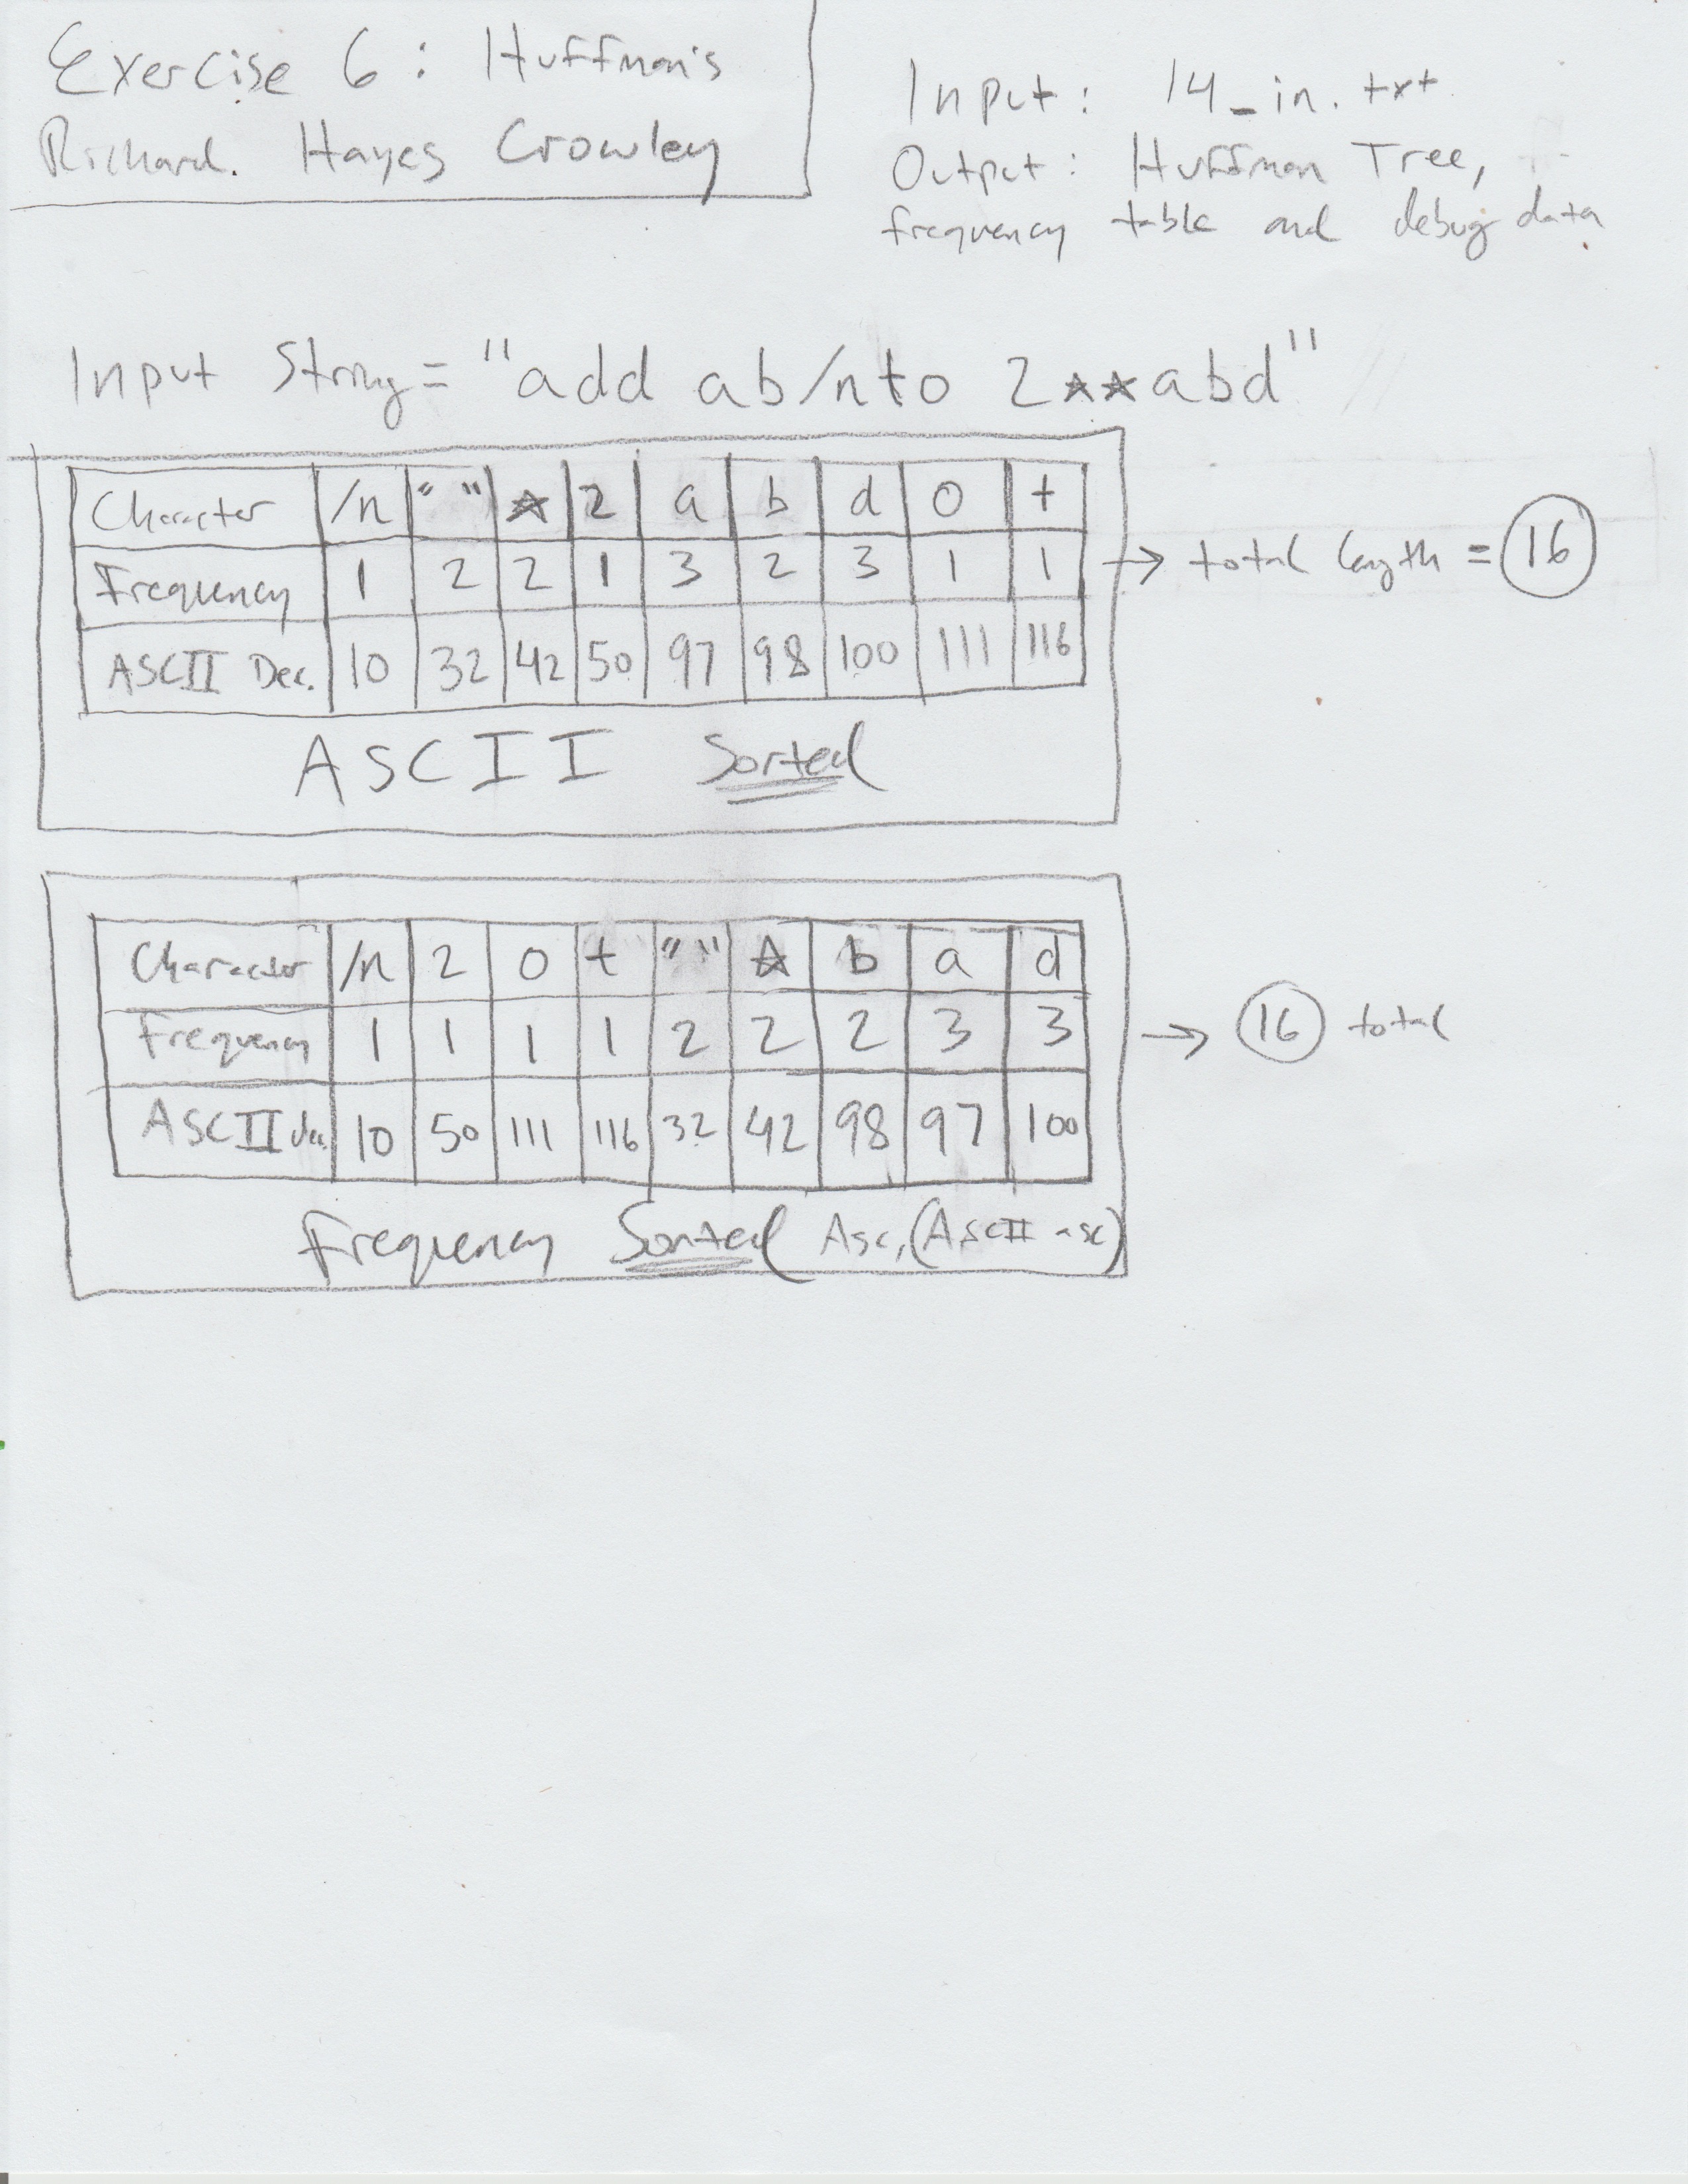 Exercise 6: Huffman's
Richard. Hayes Crowley
Input: 14_in.txt
Output: Huffman Tree,
frequency table and debug data
Input String = "add ab/nto 2**abd"
Character /n " " * 2 a b d o t
Frequency 1 2 2 1 3 2 3 1 1 → total length = 16
ASCII Dec. 10 32 42 50 97 98 100 111 116
ASCII Sorted
Character /n 2 o t " " * b a d
Frequency 1 1 1 1 2 2 2 3 3 → 16 total
ASCII dec. 10 50 111 116 32 42 98 97 100
Frequency Sorted Asc, (ASCII asc)